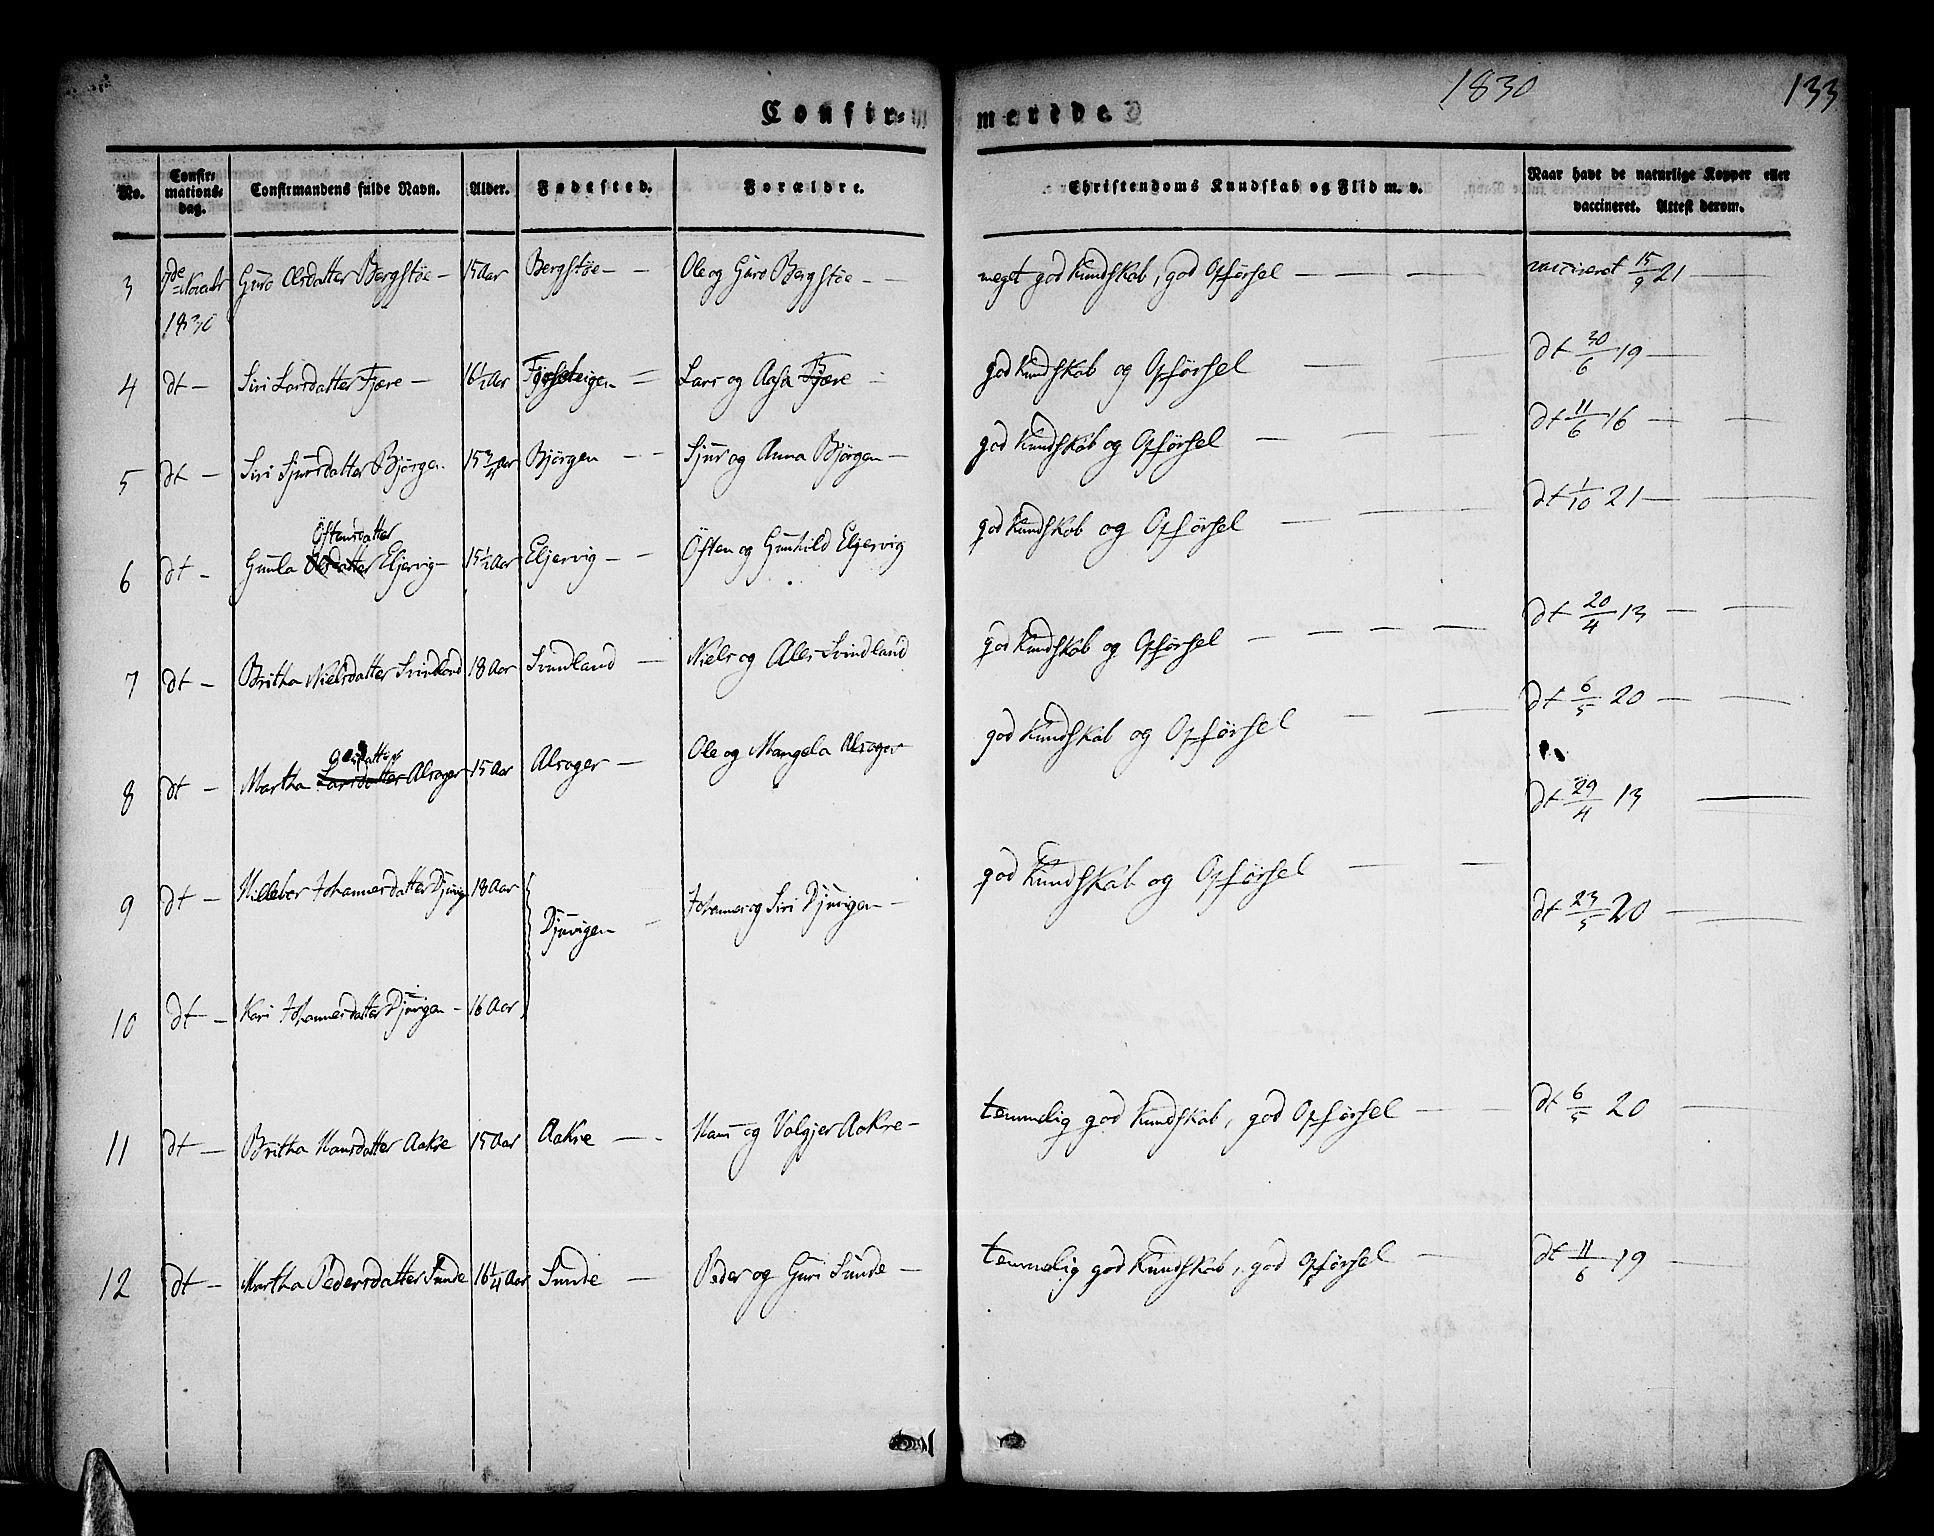 1830
133
Confir-
merede.
No.
Confir-
mations-
dag.
Confirmandens fulde Navn.
Alder.
Fødested.
Forældre.
Christendoms Kundskab og Flid m. v.
Naar havt de naturlige Kopper eller
vaccineret. Attest derom.
3 7de Novbr Guro Olsdatter Bergstøe – 15 Aar Bergstøe – – Ole og Guro Bergstøe – – meget god Kundskab, god Opførsel – – – – vaccineret 15/9 21 –
1830
4 dt – Siri Larsdatter Fjære – 16½ Aar Lars og Aasa Fjære – god Kundskab og Opførsel – – dt 30/6 19 –
5 dt – Siri Sjursdatter Bjørgen 15¾ Aar Bjørgen – – Sjur og Anna Bjørgen – god Kundskab og Opførsel – – – dt 11/6 16 – –
Østensdatter
6 dt – Gunla Olsdatter Eljervig – 15½ Aar Eljervig – – Østen og Gunhild Eljervig god Kundskab og Opførsel – – – dt 1/10 21 – –
7 dt – Britha Nielsdatter Svindland 18 Aar Svindland – Niels og Ales Svindland god Kundskab og Opførsel – – – – dt 20/4 13 – –
Olsdatter
8 dt – Martha Larsdatter Alsager 15 Aar Alsager – Ole og Mangela Alsager god Kundskab og Opførsel – – dt 6/5 20 – –
9 dt – Hilleber Johannesdatter Djuvig 18 Aar Djuvigen – Johannes og Siri Djuvigen – god Kundskab og Opførsel – – dt 29/4 13 –
10 dt – Kari Johannesdatter Djuvigen – 16 Aar dt 23/5 20 –
11 dt – Britha Hansdatter Aakre 15 Aar Aakre – – Hans og Valgjer Aakre – temmelig god Kundskab, god Opførsel – – dt 6/5 20 –
12 dt – Martha Pedersdatter Sunde 16¼ Aar Sunde – Peder og Guri Sunde – temmelig god Kundskab, god Opførsel – dt 11/6 19 –